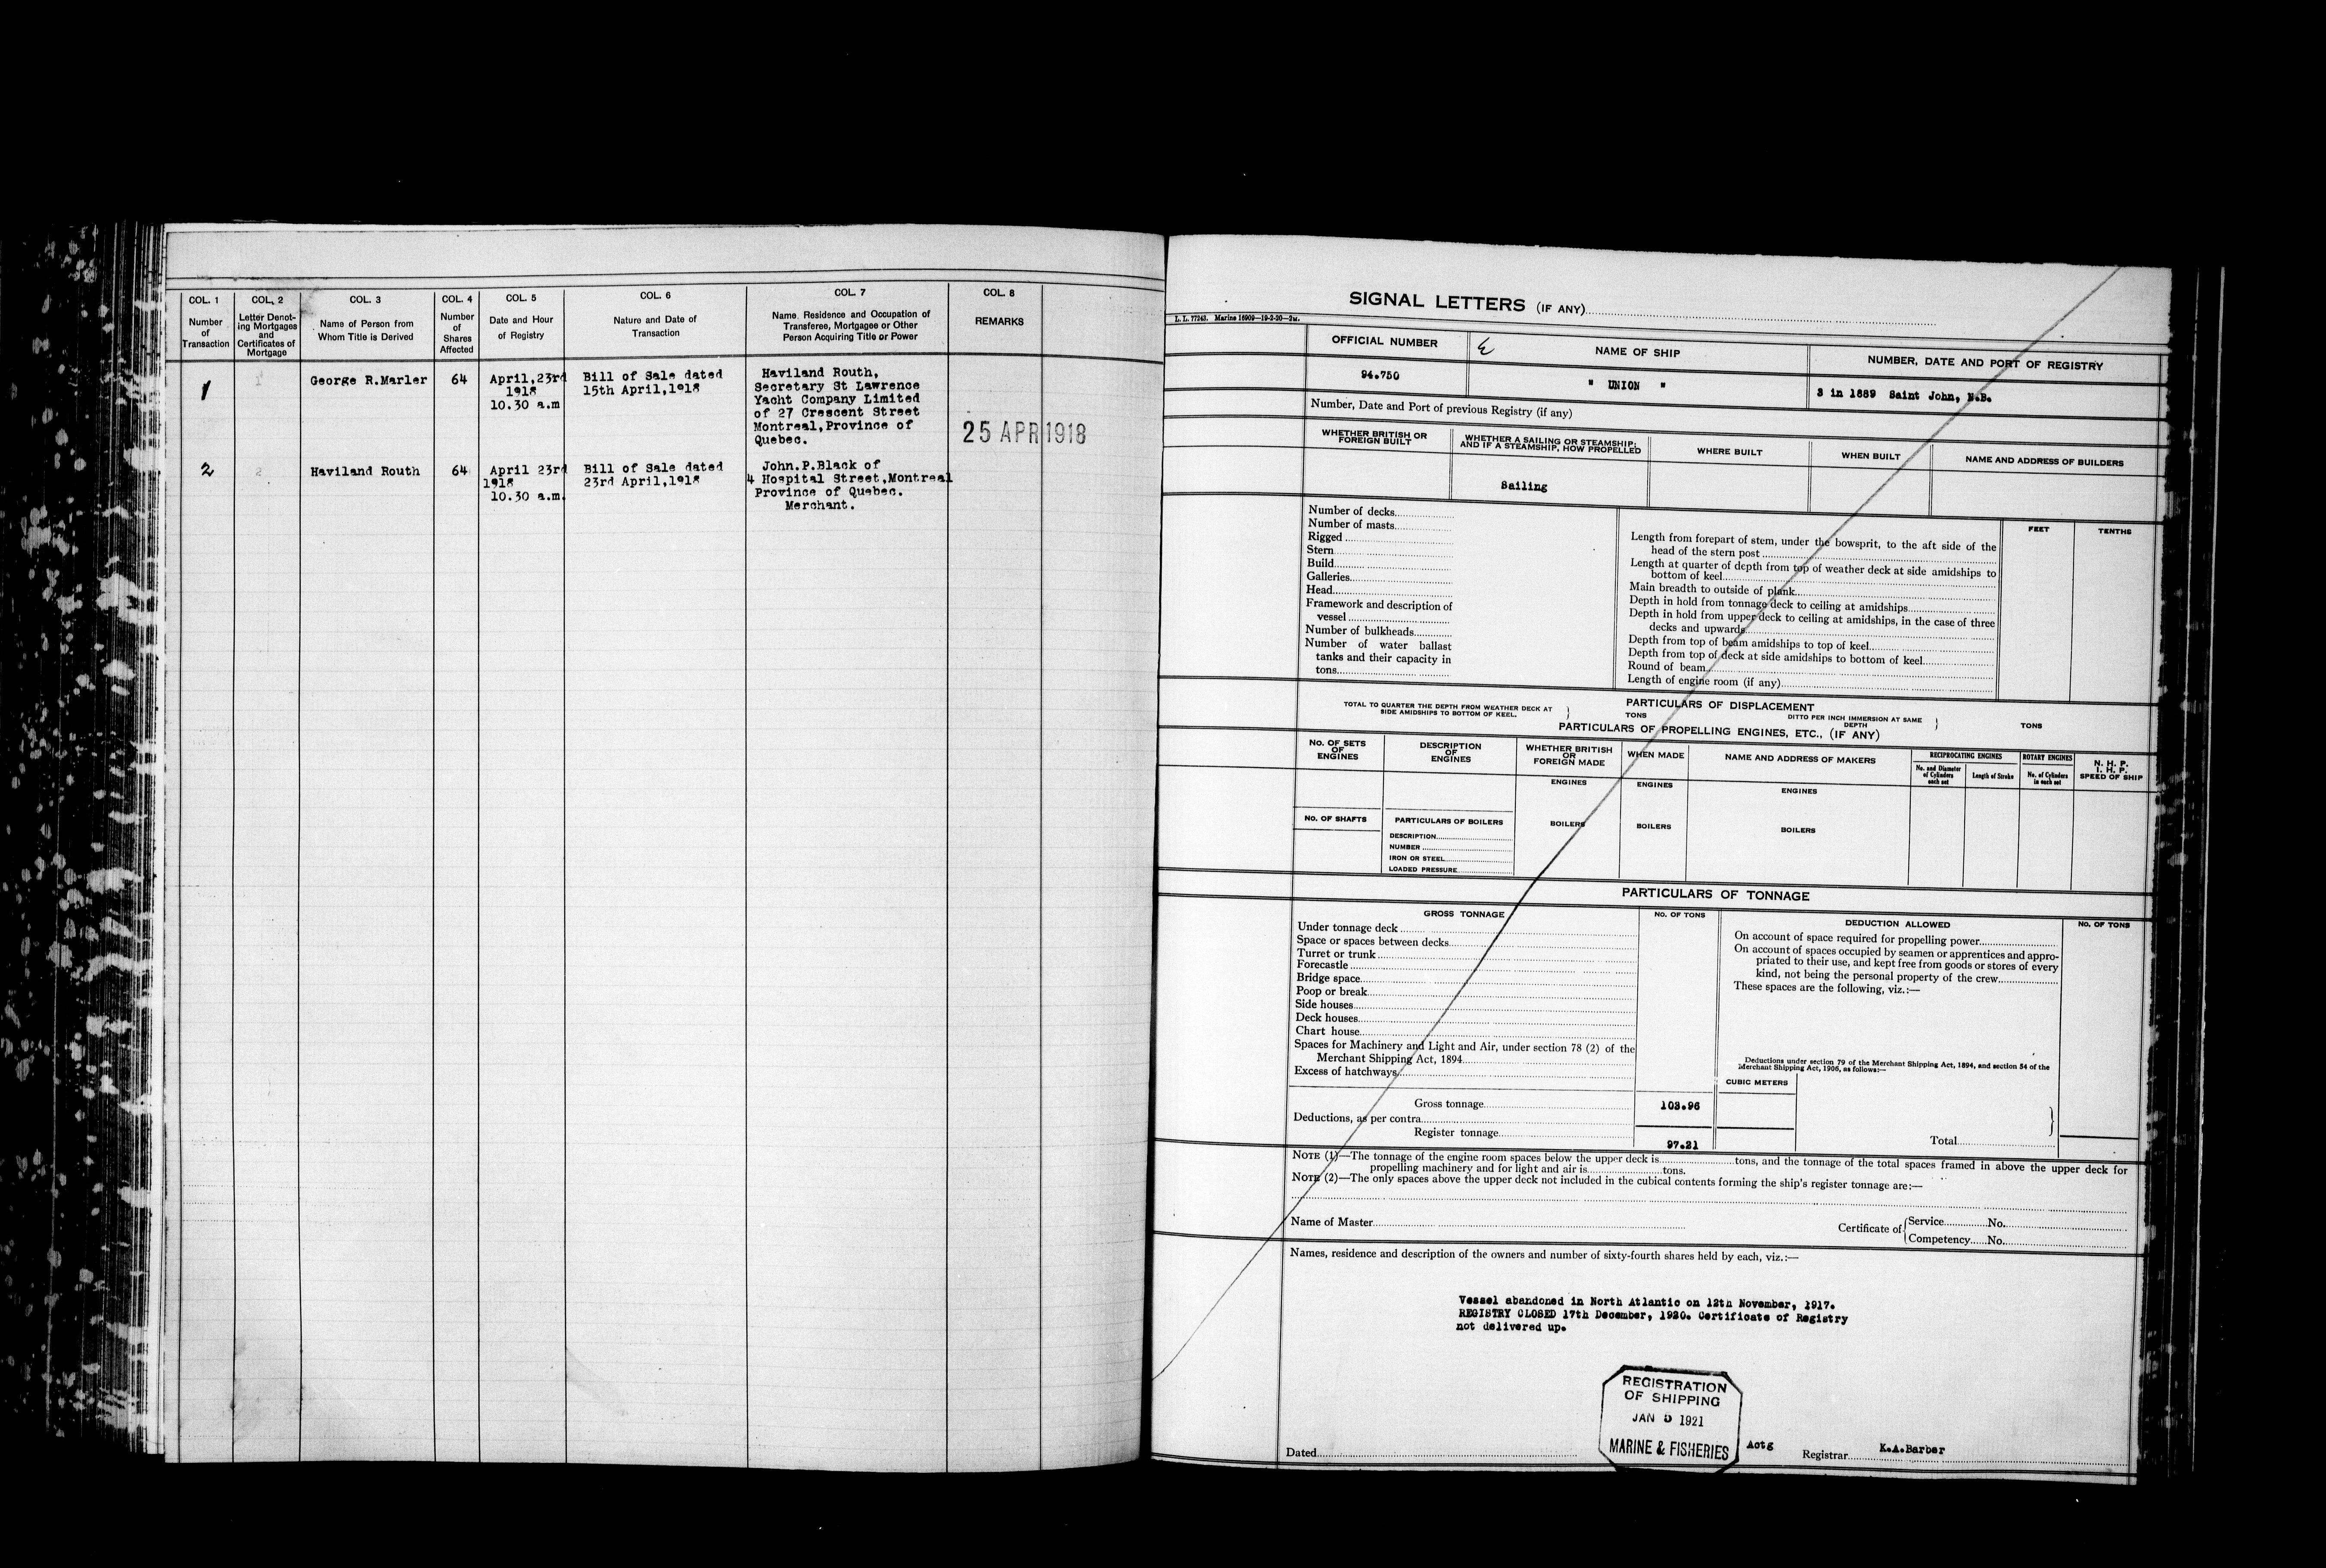 COL. 1 COL. 2 COL. 3 COL. 4 COL. 5 COL. 6 COL. 7 COL. 8
Number
of
Transaction
Letter Denot-
ing Mortgages
and
Certificates of
Mortgage
Name of Person from
Whom Title is Derived
Number
of
Shares
Affected
Date and Hour
of Registry
Nature and Date of
Transaction
Name, Residence and Occupation of
Transferee, Mortgagee or Other
Person Acquiring Title or Power
REMARKS
1 1 George R.Marler 64
April,23rd
1918
10.30 a.m
Bill of Sale dated
15th April,1918
Haviland Routh,
Secretary St Lawrence
Yacht Company Limited
of 27 Crescent Street
Montreal,Province of
Quebec.
25 APR 1918
2 2 Haviland Routh 64
April 23rd
1918
10.30 a.m.
Bill of Sale dated
23rd April,1918
John.P.Black of
4 Hospital Street,Montreal
Province of Quebec.
Merchant.
SIGNAL LETTERS (IF ANY)
L. L. 77243. Marine 16909—19-2-20—2M.
OFFICIAL NUMBER
NAME OF SHIP
NUMBER, DATE AND PORT OF REGISTRY
94.750
" UNION "
3 in 1889 Saint John, N.B.
Number, Date and Port of previous Registry (if any)
WHETHER BRITISH OR
FOREIGN BUILT
WHETHER A SAILING OR STEAMSHIP;
AND IF A STEAMSHIP, HOW PROPELLED
WHERE BUILT
WHEN BUILT
NAME AND ADDRESS OF BUILDERS
Sailing
Number of decks
Number of masts
Rigged
Stern
Build
Galleries
Head
Framework and description of
vessel
Number of bulkheads
Number of water ballast
tanks and their capacity in
tons
FEET TENTHS
Length from forepart of stem, under the bowsprit, to the aft side of the
head of the stern post
Length at quarter of depth from top of weather deck at side amidships to
bottom of keel
Main breadth to outside of plank
Depth in hold from tonnage deck to ceiling at amidships
Depth in hold from upper deck to ceiling at amidships, in the case of three
decks and upwards
Depth from top of beam amidships to top of keel
Depth from top of deck at side amidships to bottom of keel
Round of beam
Length of engine room (if any)
PARTICULARS OF DISPLACEMENT
TOTAL TO QUARTER THE DEPTH FROM WEATHER DECK AT
SIDE AMIDSHIPS TO BOTTOM OF KEEL.
TONS
DITTO PER INCH IMMERSION AT SAME
DEPTH
TONS
PARTICULARS OF PROPELLING ENGINES, ETC., (IF ANY)
No. OF SETS
OF
ENGINES
DESCRIPTION
OF
ENGINES
WHETHER BRITISH
OR
FOREIGN MADE
WHEN MADE
NAME AND ADDRESS OF MAKERS
RECIPROCATING ENGINES
No. and Diameter
of Cylinders
each set
Length of Stroke
ROTARY ENGINES
No. of Cylinders
in each set
N. H. P.
I. H. P.
SPEED OF SHIP
ENGINES ENGINES ENGINES
No. OF SHAFTS
PARTICULARS OF BOILERS
BOILERS BOILERS BOILERS
DESCRIPTION
NUMBER
IRON OR STEEL
LOADED PRESSURE
PARTICULARS OF TONNAGE
GROSS TONNAGE
No. OF TONS
DEDUCTION ALLOWED
No. OF TONS
Under tonnage deck
Space or spaces between decks
Turret or trunk
Forecastle
Bridge space
Poop or break
Side houses
Deck houses
Chart house
Spaces for Machinery and Light and Air, under section 78 (2) of the
Merchant Shipping Act, 1894
Excess of hatchways
Gross tonnage 103.96
Deductions, as per contra
Register tonnage 97.21
On account of space required for propelling power
On account of spaces occupied by seamen or apprentices and appro-
priated to their use, and kept free from goods or stores of every
kind, not being the personal property of the crew
These spaces are the following, viz.:—
Deductions under section 79 of the Merchant Shipping Act, 1894, and section 54 of the
Merchant Shipping Act, 1906, as follows:—
CUBIC METERS
Total
NOTE (1)—The tonnage of the engine room spaces below the upper deck is tons, and the tonnage of the total spaces framed in above the upper deck for
propelling machinery and for light and air is tons.
NOTE (2)—The only spaces above the upper deck not included in the cubical contents forming the ship's register tonnage are:—
Name of Master
Certificate of
Service No.
Competency No.
Names, residence and description of the owners and number of sixty-fourth shares held by each, viz.:—
Vessel abandoned in North Atlantic on 12th November, 1917.
REGISTRY CLOSED 17th December, 1920. Certificate of Registry
not delivered up.
REGISTRATION
OF SHIPPING
JAN 5 1921
MARINE & FISHERIES
Dated
Actg Registrar K.A.Barber